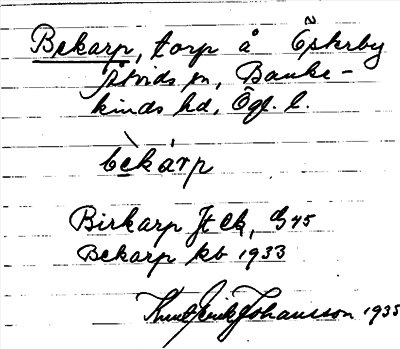 Bekarp, torp å Österby
Åtvids sn, Banke-
kinds hd, Ögl. l.
bèkárp
Birkarp Jt Ek, G 45
Bekarp kb 1933
Knut Erik Johansson 1935